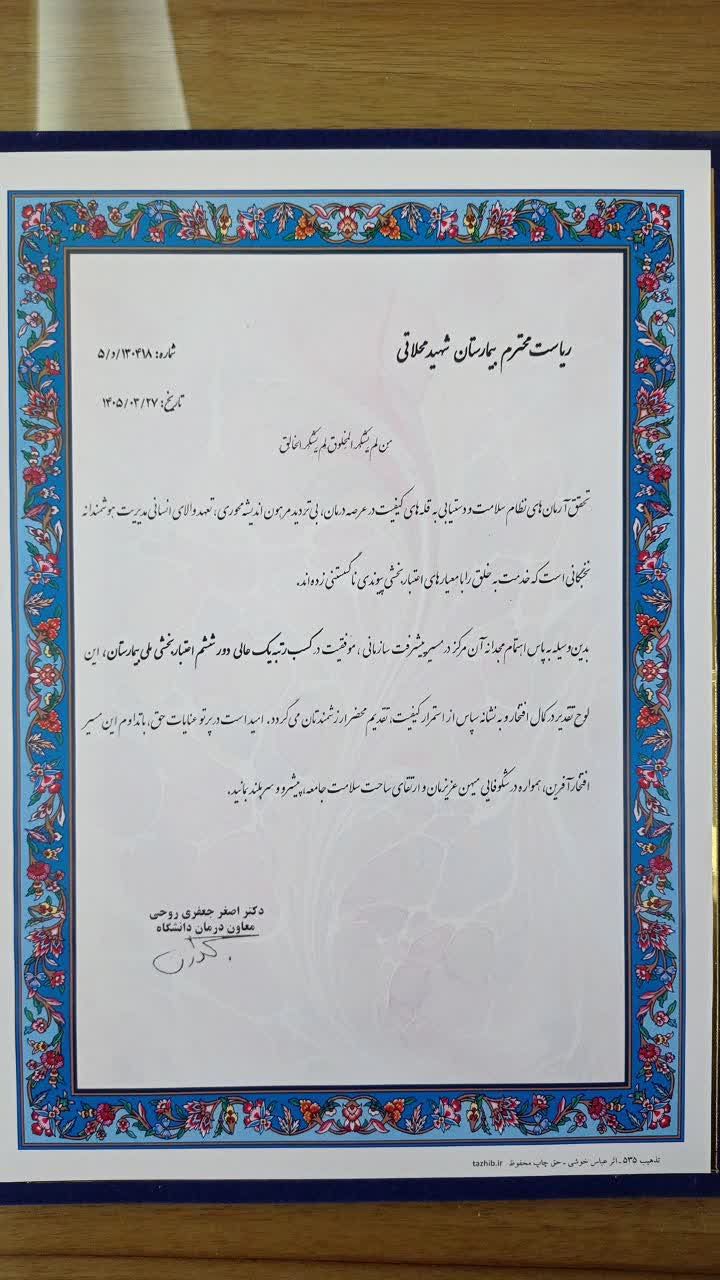 ریاست محترم بیمارستان شهید محلاتی
شماره: ۵/د/۱۳۰۴۱۸
تاریخ: ۱۴۰۵/۰۳/۲۷
من لم یشکر المخلوق لم یشکر الخالق
تحقق آرمان‌های نظام سلامت و دستیابی به قله‌های کیفیت در عرصه درمان، بی‌تردید مرهون اندیشه محوری، تعهد والای انسانی مدیریت هوشمندانه
نخبگانی است که خدمت به خلق را با معیارهای اعتباربخشی پیوندی ناگسستنی زده‌اند.
بدین وسیله به پاس اهتمام مجدانه آن مرکز در مسیر پیشرفت سازمانی، موفقیت در کسب رتبه یک عالی دور ششم اعتباربخشی ملی بیمارستان، این
لوح تقدیر در کمال افتخار و به نشانه سپاس از استمرار کیفیت، تقدیم محضر ارزشمندتان می‌گردد. امید است در پرتو عنایات حق، با تداوم این مسیر
افتخارآفرین، همواره در شکوفایی میهن عزیزمان و ارتقای ساحت سلامت جامعه، پیشرو و سربلند بمانید.
دکتر اصغر جعفری روحی
معاون درمان دانشگاه
تذهیب ۵۳۵ - اثر عباس خوشی - حق چاپ محفوظ tazhib.ir